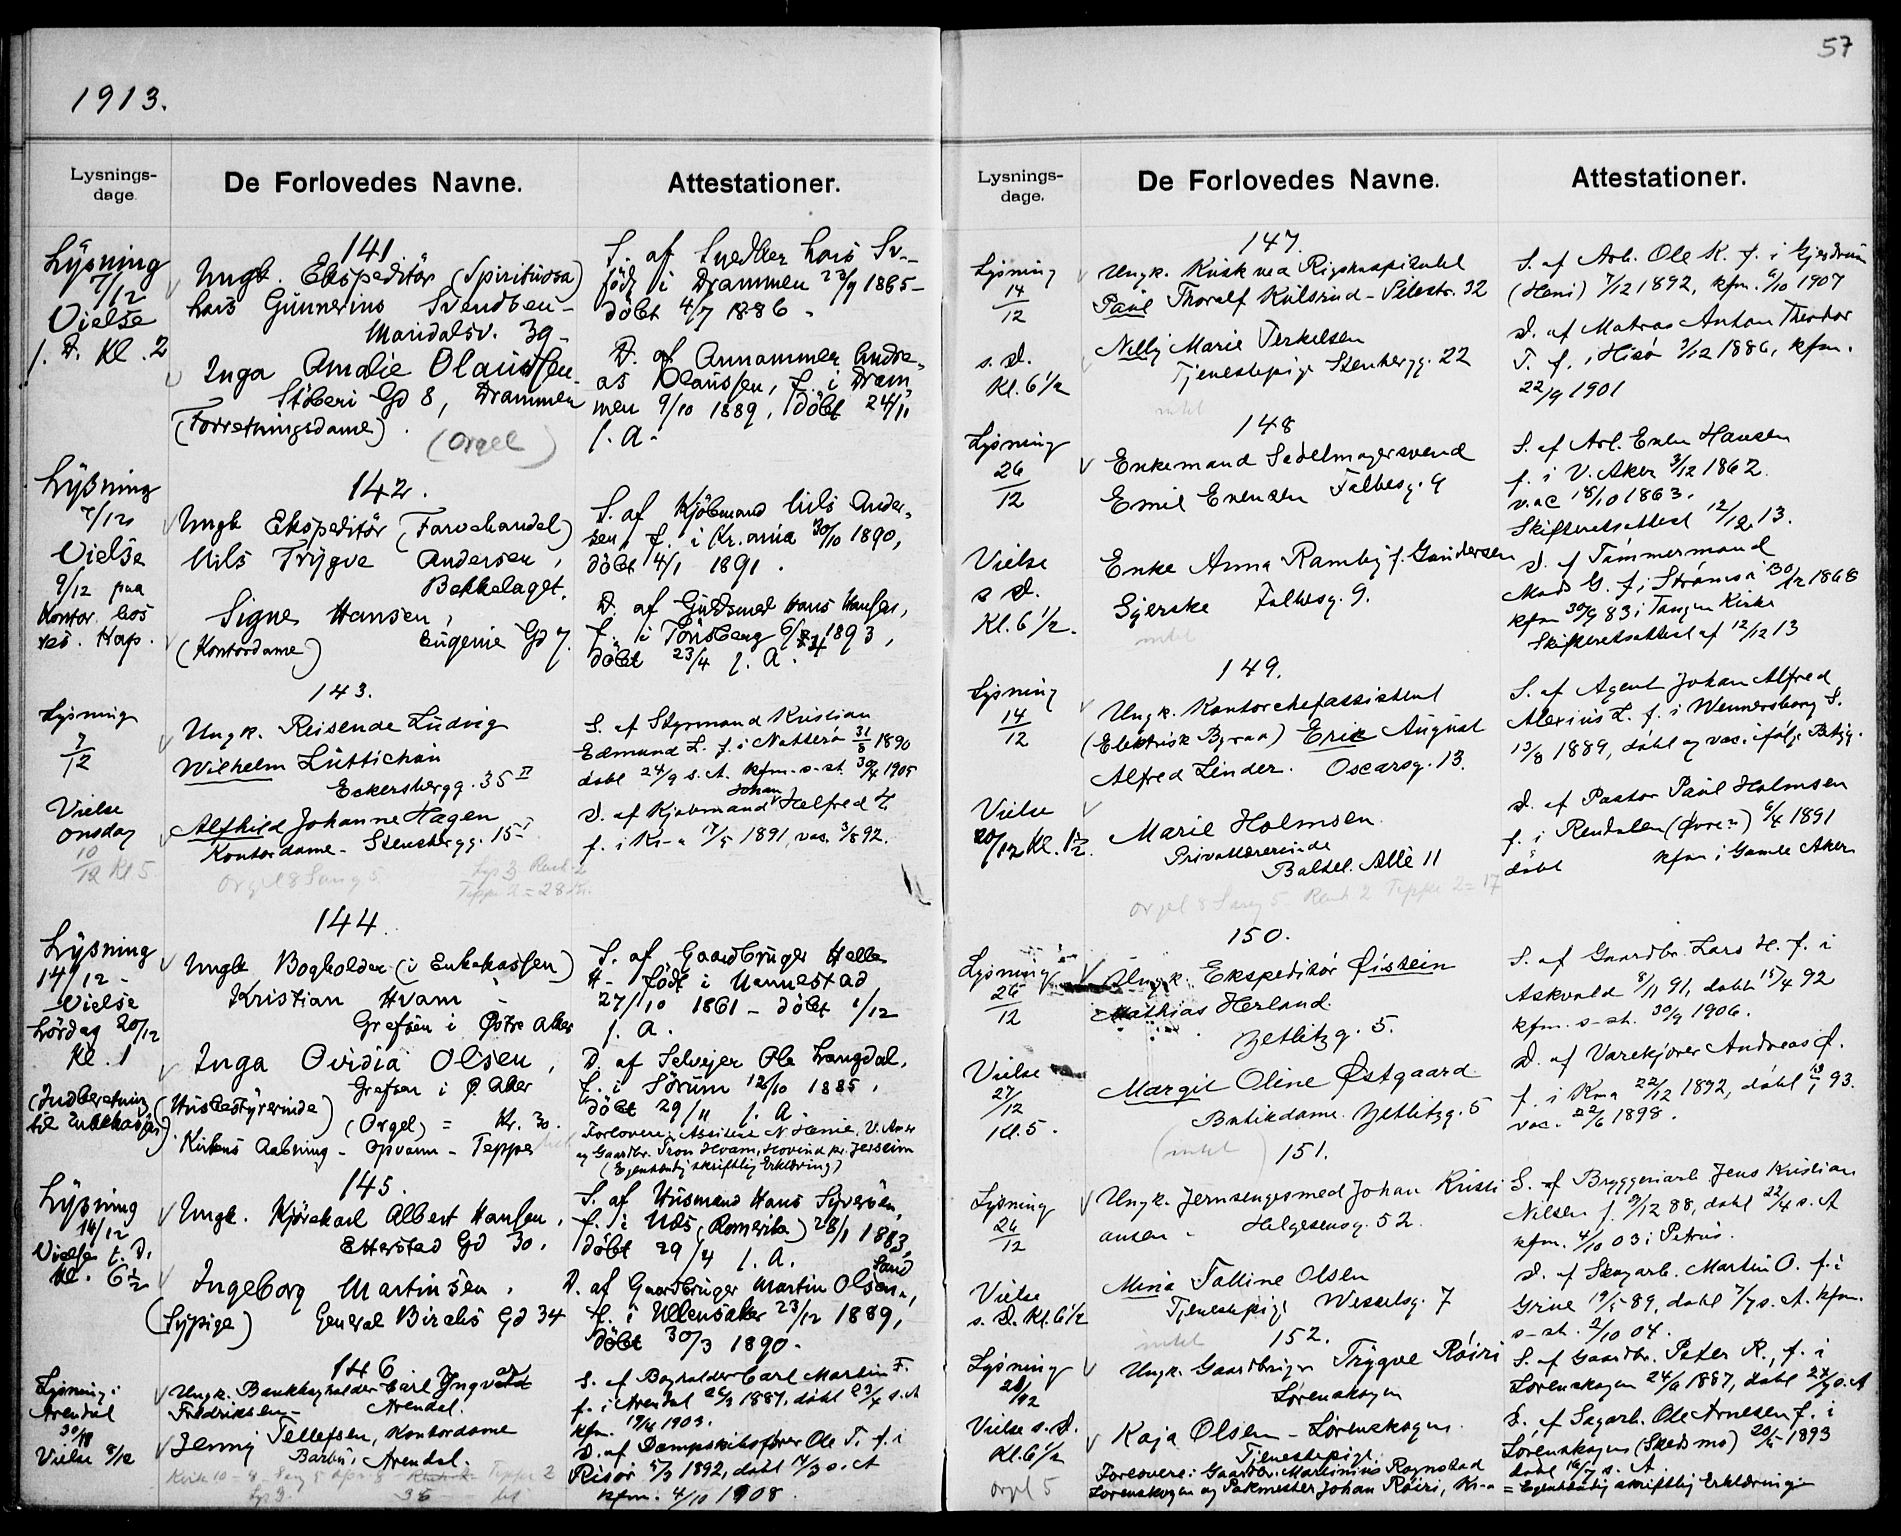 57
1913.
Lysnings-
dage.
De Forlovedes Navne.
Attestationer.
Lysning
7/12
Vielse
s. D. Kl. 2
141
Ungk. Ekspeditör (Spirituosa)
Lars Gunnerius Svendsen -
Maridalsv. 39 -
Inga Amalie Olaussen -
Støberi Gd 8, Drammen
(Forretningsdame)
(Orgel)
S. af Snedker Lars Sv.-
född i Drammen 23/9 1865 -
döbt 4/7 1886 -
D. af Annammer Andre-
as Olaussen, f. i Dram-
men 9/10 1889, döbt 24/11
s. A.
Lysning
7/12
Vielse
9/12 paa
Kontor hos
res. Kap.
142.
Ungk Ekspeditör (Farvehandel)
Nils Trygve Andersen,
Bekkelaget.
Signe Hansen,
(Kontordame) Eugenie Gd 7.
S. af Kjöbmand Nils Ander-
sen, f. i Kr.ania 30/10 1890,
döbt 4/1 1891.
D. af Guldsmed Hans Hansen,
f. i Tönsberg 1893,
döbt 23/4 s. A.
Lysning
7
12
Vielse
onsdag
10/12 Kl 5
143.
Ungk. Reisende Ludvig
Wilhelm Lüttichau
Eckersbergg. 35 II
Alfhild Johanne Hagen
Kontordame - Stensbergg. 15 I
Orgel 8 Sang 5
Teppe 2 = 28
S. af Styrmand Kristian
Edmund L. f. i Nøtterø 31/5 1890
døbt 24/9 s. A. kfm. s-st. 30/4 1905
D. af Kjøbmand Johan Helfred H.
f. i Kr-a 17/5 1891, vac. 3/8 92.
Lysning
14/12 -
Vielse
Lördag 20/12
Kl. 1
(Indberetning
til Enkekassen).
144.
Ungk Bogholder (i Enkekassen)
Kristian Hvam -
Grefsen i Östre Aker
Inga Ovidia Olsen,
Grefsen i Ø. Aker
(Husbestyrerinde) (Orgel) = Kr. 30.
Kirkens Aabning - Opvarm - Teppe
S. af Gaardbruger Helle
H - född i Nannestad
27/10 1861 - döbt 1/12
s. A.
D. af Selveier Ole Langdal,
f. i Sörum 12/10 1885,
döbt 29/11 s. A.
Forlovere: Assistent N. Henie, V. Aker
og Gaardbr. Tron Hvam, Hovind pr. Jessheim
(Egenhændig skriftlig Erklæring)
Lysning
14/12
Vielse s. D.
Kl. 6 1/2
145.
Ungk. Kjörekarl Albert Hansen,
Etterstad Gd 30.
Ingeborg Martinsen,
(Sypige) General Birchs Gd 34
S. af Husmand Hans Syversen,
f. i Næs (Romerike) 28/1 1883,
döbt 29/4 s. A.
D. af Gaardbruger Martin Olsen Sand,
f. i Ullensaker 23/12 1889,
döbt 30/3 1890.
Lysning i
Arendal
30/11
Vielse 8/12
146
Ungk. Bankbogholder Carl Yngvar
Fredriksen - Arendal.
Jenny Tellefsen, Kontordame
Barbu, Arendal.
S. af Bogholder Carl Martin F.
f. i Arendal 1887, døbt s. A
kfm. 1903.
D. af Dampskibsfører Ole T. f. i
Risør 5/3 1892, døbt 14/3 s. A
kfm. 4/10 1908.
Lysnings-
dage.
De Forlovedes Navne.
Attestationer.
Lysning
14
12
s. D.
Kl. 6 1/2
147.
Ungk. Kusk ved Rigshospitalet
Paul Thoralf Kulsrud - Pilestr. 32
Nelly Marie Terkelsen
Tjenestepige Stensbergg. 22
intet
S. af Arb. Ole K. f. i Gjerdrum
(Heni) 7/12 1892, kfm. 6/10 1907
D. af Matros Anton Theodor
T. f. i Hisø 3/12 1886, kfm.
22/9 1901
Lysning
26
12
Vielse
s D.
Kl. 6 1/2.
148
Enkemand Sadelmagersvend
Emil Evensen Falbesg. 9
Enke Anna Ramby f. Gundersen
Syerske Falbesg. 9.
intet
S. af Arb. Even Hansen
f. i V. Aker 3/12 1862
vac 18/10 1863.
Skifteretsattest 12/12 13.
D. af Tømmermand
Mads G. f. i Strømsø 30/12 1868
kfm 30/9 83 i Tangen Kirke
Skifteretsattest af 12/12 13
Lysning
14
12
Vielse
20/12 Kl. 1 1/2.
149.
Ungk. Kontorchefassistent
(Elektrisk Byraa) Erik August
Alfred Linder. Oscarsg. 13.
Marie Holmsen.
Privatlærerinde
Baltel. Allé 11
Orgel 8 Sang 5. Rent 2 Teppe 2 = 17
S. af Agent Johan Alfred
Alexius L. f. i Wennersborg S.
13/8 1889, døbt og vac. ifølge Betyg.
D. af Pastor Paul Holmsen
f. i Rendalen (Øvre) 6/4 1891
døbt kfm i Gamle Aker
Lysning
26
12
Vielse
27
12
Kl. 5.
150.
Ungk. Ekspeditør Øistein
Mathias Herland.
Zetlitzg. 5.
Margit Oline Østgaard
Butikdame. Zetlitzg. 5
(intet)
S. af Gaardbr. Lars H. f. i
Askvold 8/11 91, døbt 15/4 92
kfm. s-st. 30/9 1906.
D. af Varekjører Andreas Ø.
f. i Kr-a 22/12 1892, døbt 93.
vac. 22/6 1898.
Lysning
26
12
Vielse
s. D. Kl. 6 1/2
151.
Ungk. Jernsengesmed Johan Kristi
ansen - Helgesensg. 52.
Mina Talline Olsen
Tjenestepige Wesselsg. 7
intet
S. af Bryggeriarb Jens Kristian
Nilsen f. 9/12 88, døbt 22/4 s. A
kfm. 4/10 03 i Petrus.
D. af Skogarb. Martin O. f. i
Grue 19/5 89, døbt 7/7 s. A. kfm.
s-st. 2/10 04.
Lysning
28/12
Vielse s. D.
Kl. 6 1/2
orgel 5
152.
Ungk. Gaardbruger Trygve Röiri
Lørenskogen
Kaja Olsen - Lørenskogen.
Tjenestepige.
Forlovere: Gaardbr. Martinius Rognstad
Lørenskogen og Pakmester Johan Røiri, Kr-a
S. af Gaardbr. Peter R., f. i
Lørenskogen 24/6 1887, døbt s. A
D. af Sagarb. Ole Arnesen f. i
Lørenskogen (Skedsmo) 20/5 1893
døbt 16/7 s. A.
= Egenhændig skriftlig Erklæring